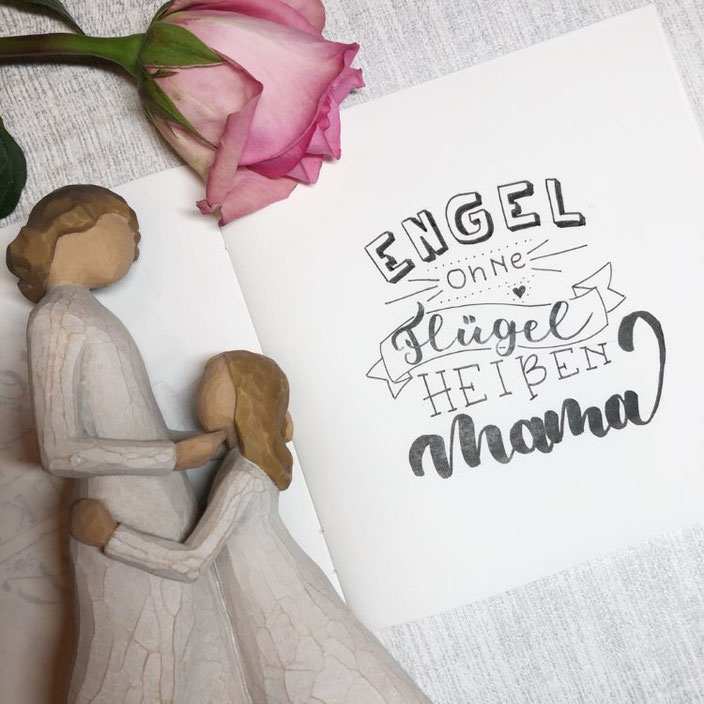 ENGEL
ohne
Flügel
HEIßEN
Mama